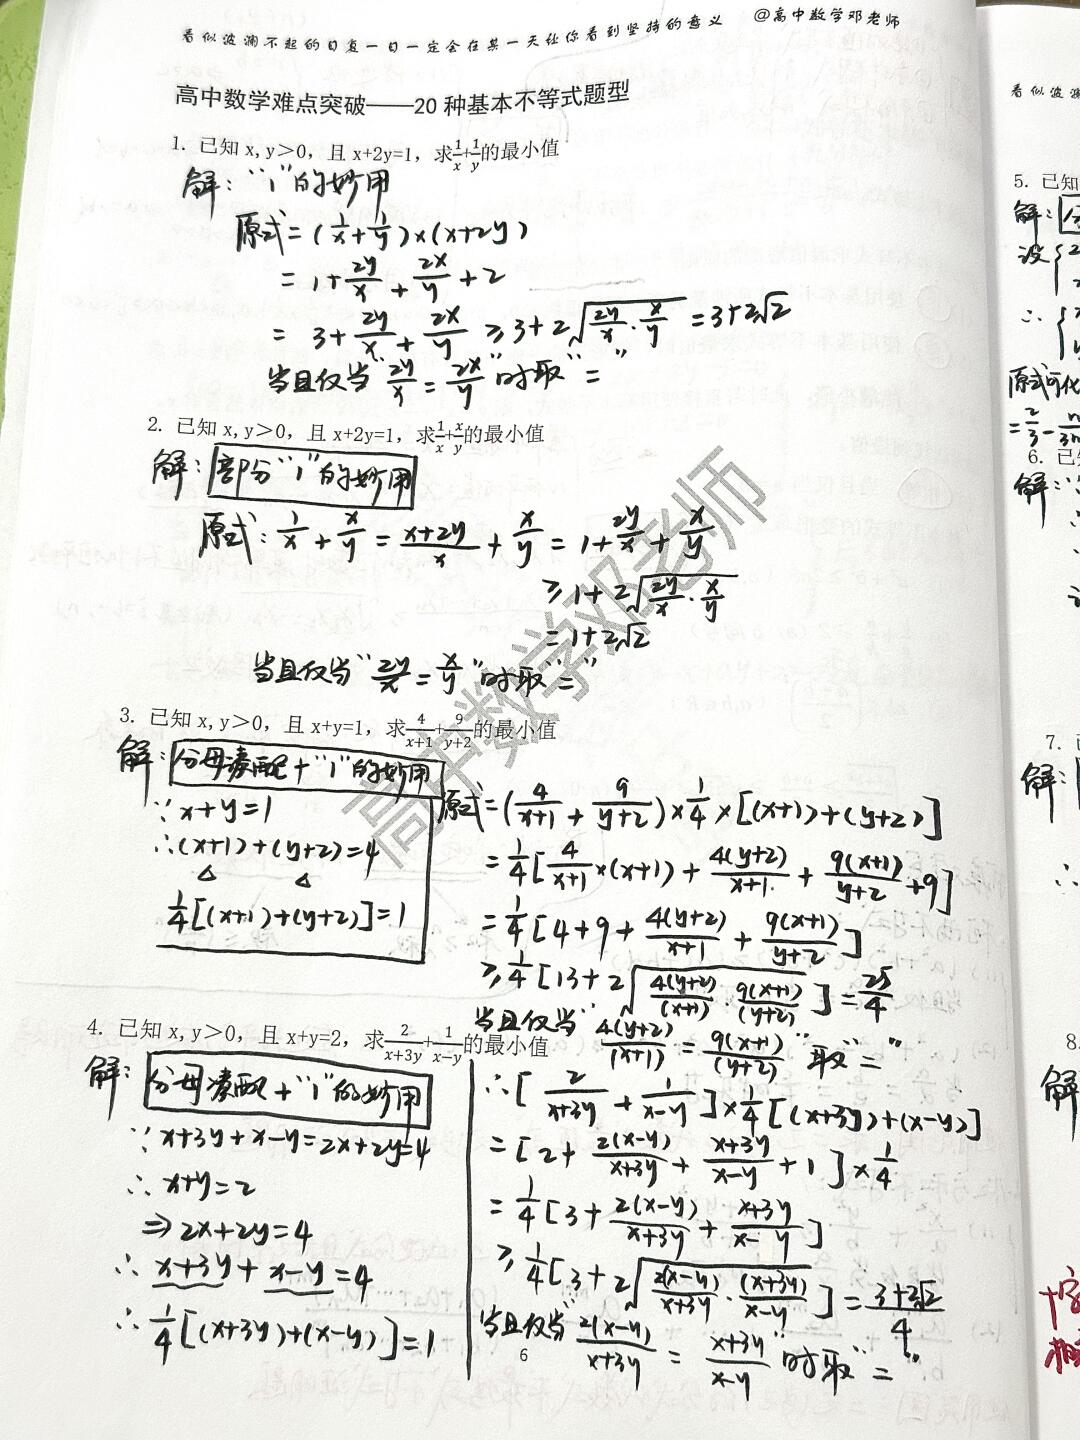 看似波澜不起的日复一日一定会在某一天让你看到坚持的意义 @高中数学邓老师
高中数学难点突破——20 种基本不等式题型
1. 已知 x,y>0，且 x+2y=1，求1/x+1/y的最小值
解："1"的妙用
原式=(1/x+1/y)×(x+2y)
=1+2y/x+2x/y+2
=3+2y/x+2x/y≥3+2√(2y/x·x/y)=3+2√2
当且仅当"2y/x=2x/y"时取"="
2. 已知 x,y>0，且 x+2y=1，求1/x+x/y的最小值
解：部分"1"的妙用
原式：1/x+x/y=(x+2y)/x+x/y=1+2y/x+x/y
≥1+2√(2y/x·x/y)
=1+2√2
当且仅当"2y/x=x/y"时取"="
3. 已知 x,y>0，且 x+y=1，求4/(x+1)+9/(y+2)的最小值
解：分母凑配+"1"的妙用
∵x+y=1
∴(x+1)+(y+2)=4
1/4[(x+1)+(y+2)]=1
原式=(4/(x+1)+9/(y+2))×1/4×[(x+1)+(y+2)]
=1/4[4/(x+1)×(x+1)+4(y+2)/(x+1)+9(x+1)/(y+2)+9]
=1/4[4+9+4(y+2)/(x+1)+9(x+1)/(y+2)]
≥1/4[13+2√(4(y+2)/(x+1)·9(x+1)/(y+2))]=25/4
当且仅当"4(y+2)/(x+1)=9(x+1)/(y+2)"取"="
4. 已知 x,y>0，且 x+y=2，求2/(x+3y)+1/(x−y)的最小值
解：分母凑配+"1"的妙用
∵x+3y+x-y=2x+2y=4
∴x+y=2
⇒2x+2y=4
∴x+3y+x-y=4
∴1/4[(x+3y)+(x-y)]=1
∴[2/(x+3y)+1/(x-y)]×1/4[(x+3y)+(x-y)]
=[2+2(x-y)/(x+3y)+(x+3y)/(x-y)+1]×1/4
=1/4[3+2(x-y)/(x+3y)+(x+3y)/(x-y)]
≥1/4[3+2√(2(x-y)/(x+3y)·(x+3y)/(x-y))]=(3+2√2)/4
当且仅当"2(x-y)/(x+3y)=(x+3y)/(x-y)"时取"="
6
高中数学邓老师
看似波澜
5. 已知
解：
设
∴
原式可化
6. 已知
解：
7.
解：
∴
8.
解